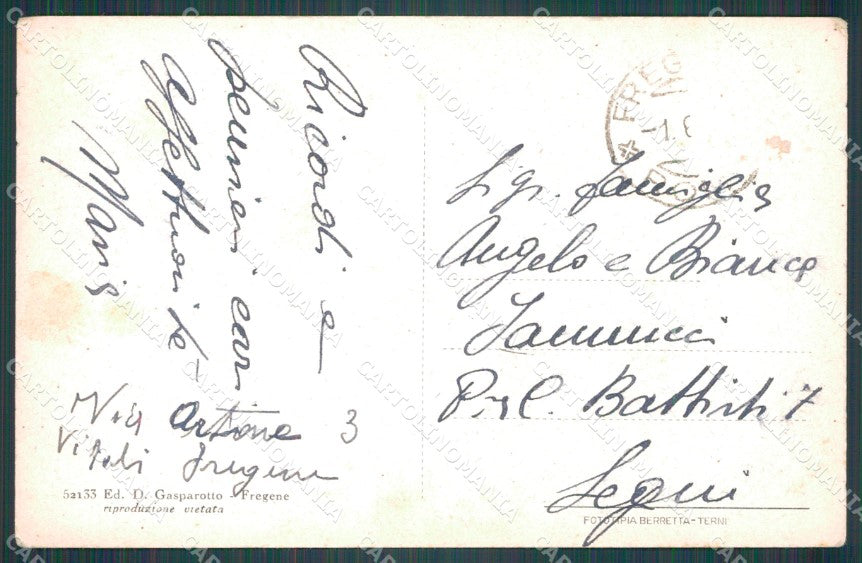 Ricordi e
pensieri cari
affettuosità
Maria
Via Ortione 3
Vitali Fregene
52133 Ed. D. Gasparotto - Fregene
riproduzione vietata
FREG
-1.6
Sig. Famiglia
Angelo e Bianca
Iannucci
P. C. Battisti 7
Segni
FOTOTIPIA BERRETTA-TERNI
CARTOLINOMANIA